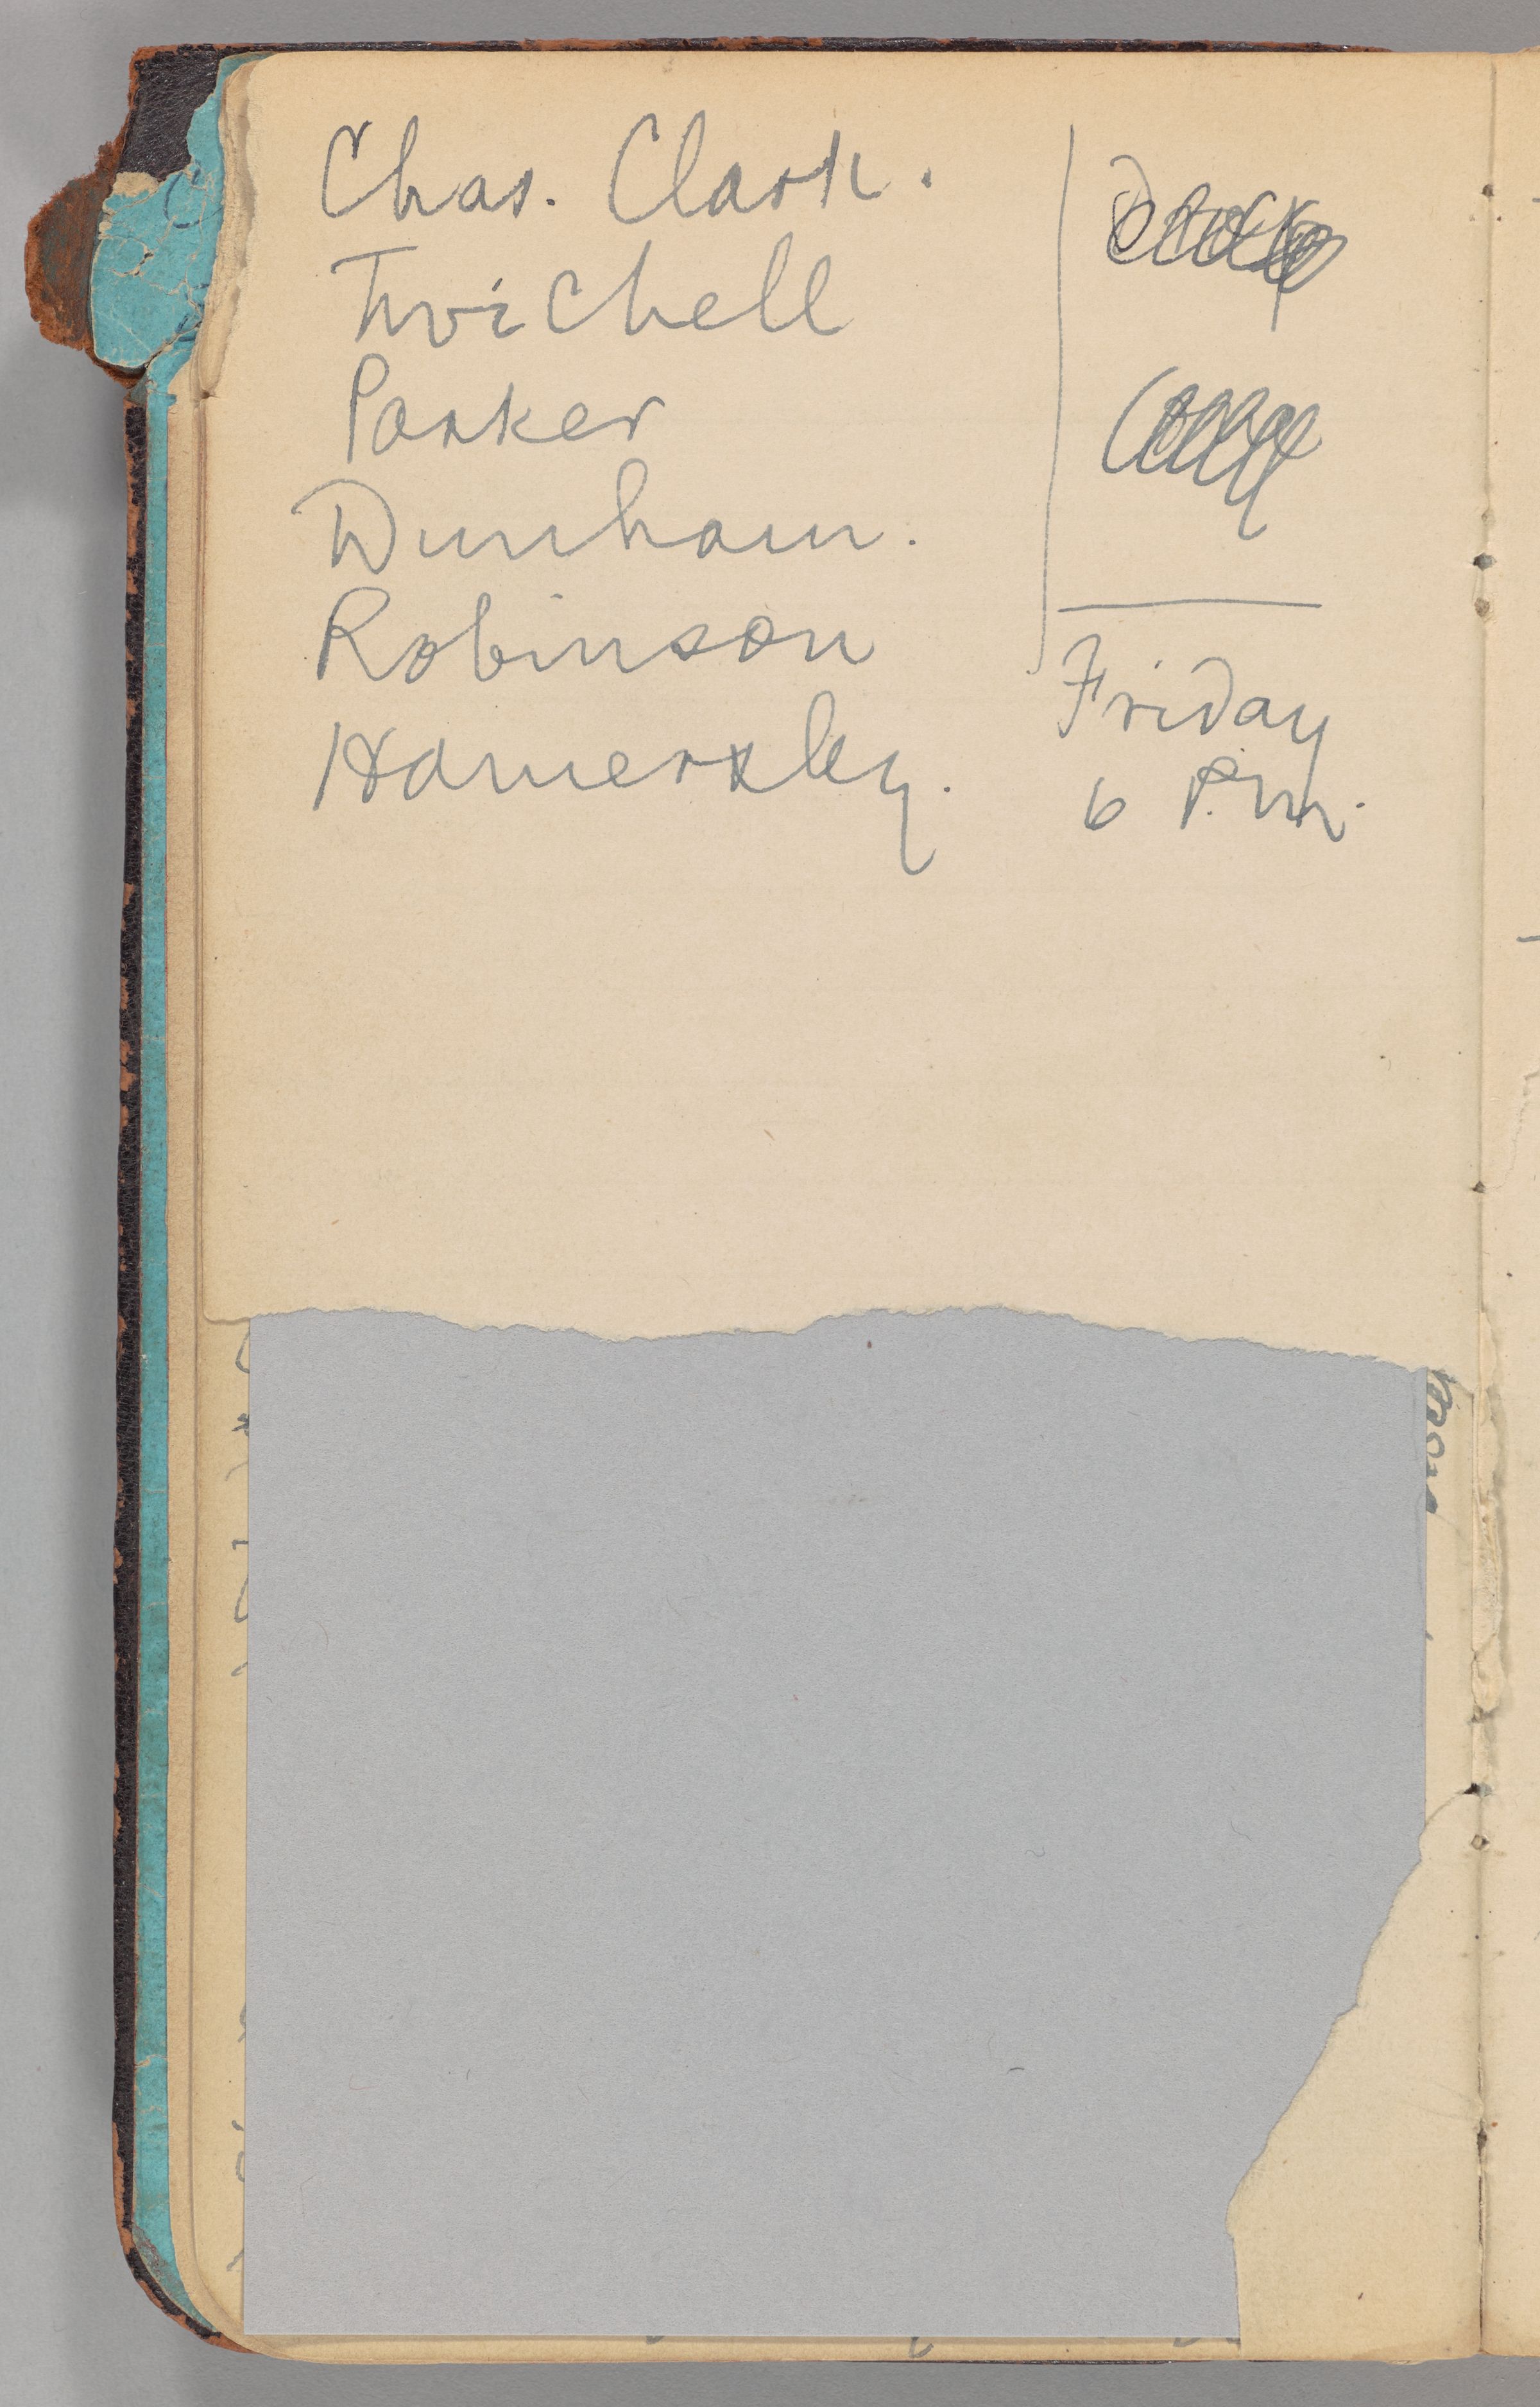 Chas. Clark.
Twichell
Parker
Dunham.
Robinson
Hamersley.
Friday
6 P.m.